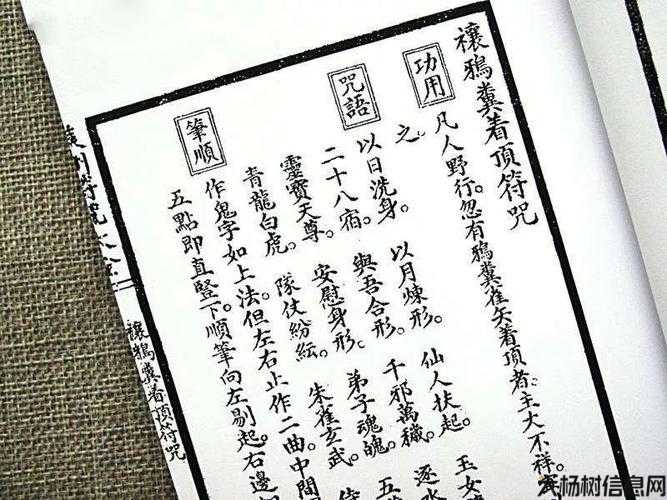 禳鴉糞着頂符咒
功用
凡人野行。忽有鴉糞雀矢着頂者。主大不祥。
之
咒語
以日洗身。以月煉形。仙人扶起。玉女
二十八宿。與吾合形。千邪萬穢。逐水
靈寶天尊。安慰身形。弟子魂魄。
青龍白虎。隊仗紛紜。朱雀玄武。
筆順
作鬼字如上法但左右止作二曲中間
五點即直豎下。順筆向左剔起。右邊
禳鴉糞着頂符咒
杨树信息网